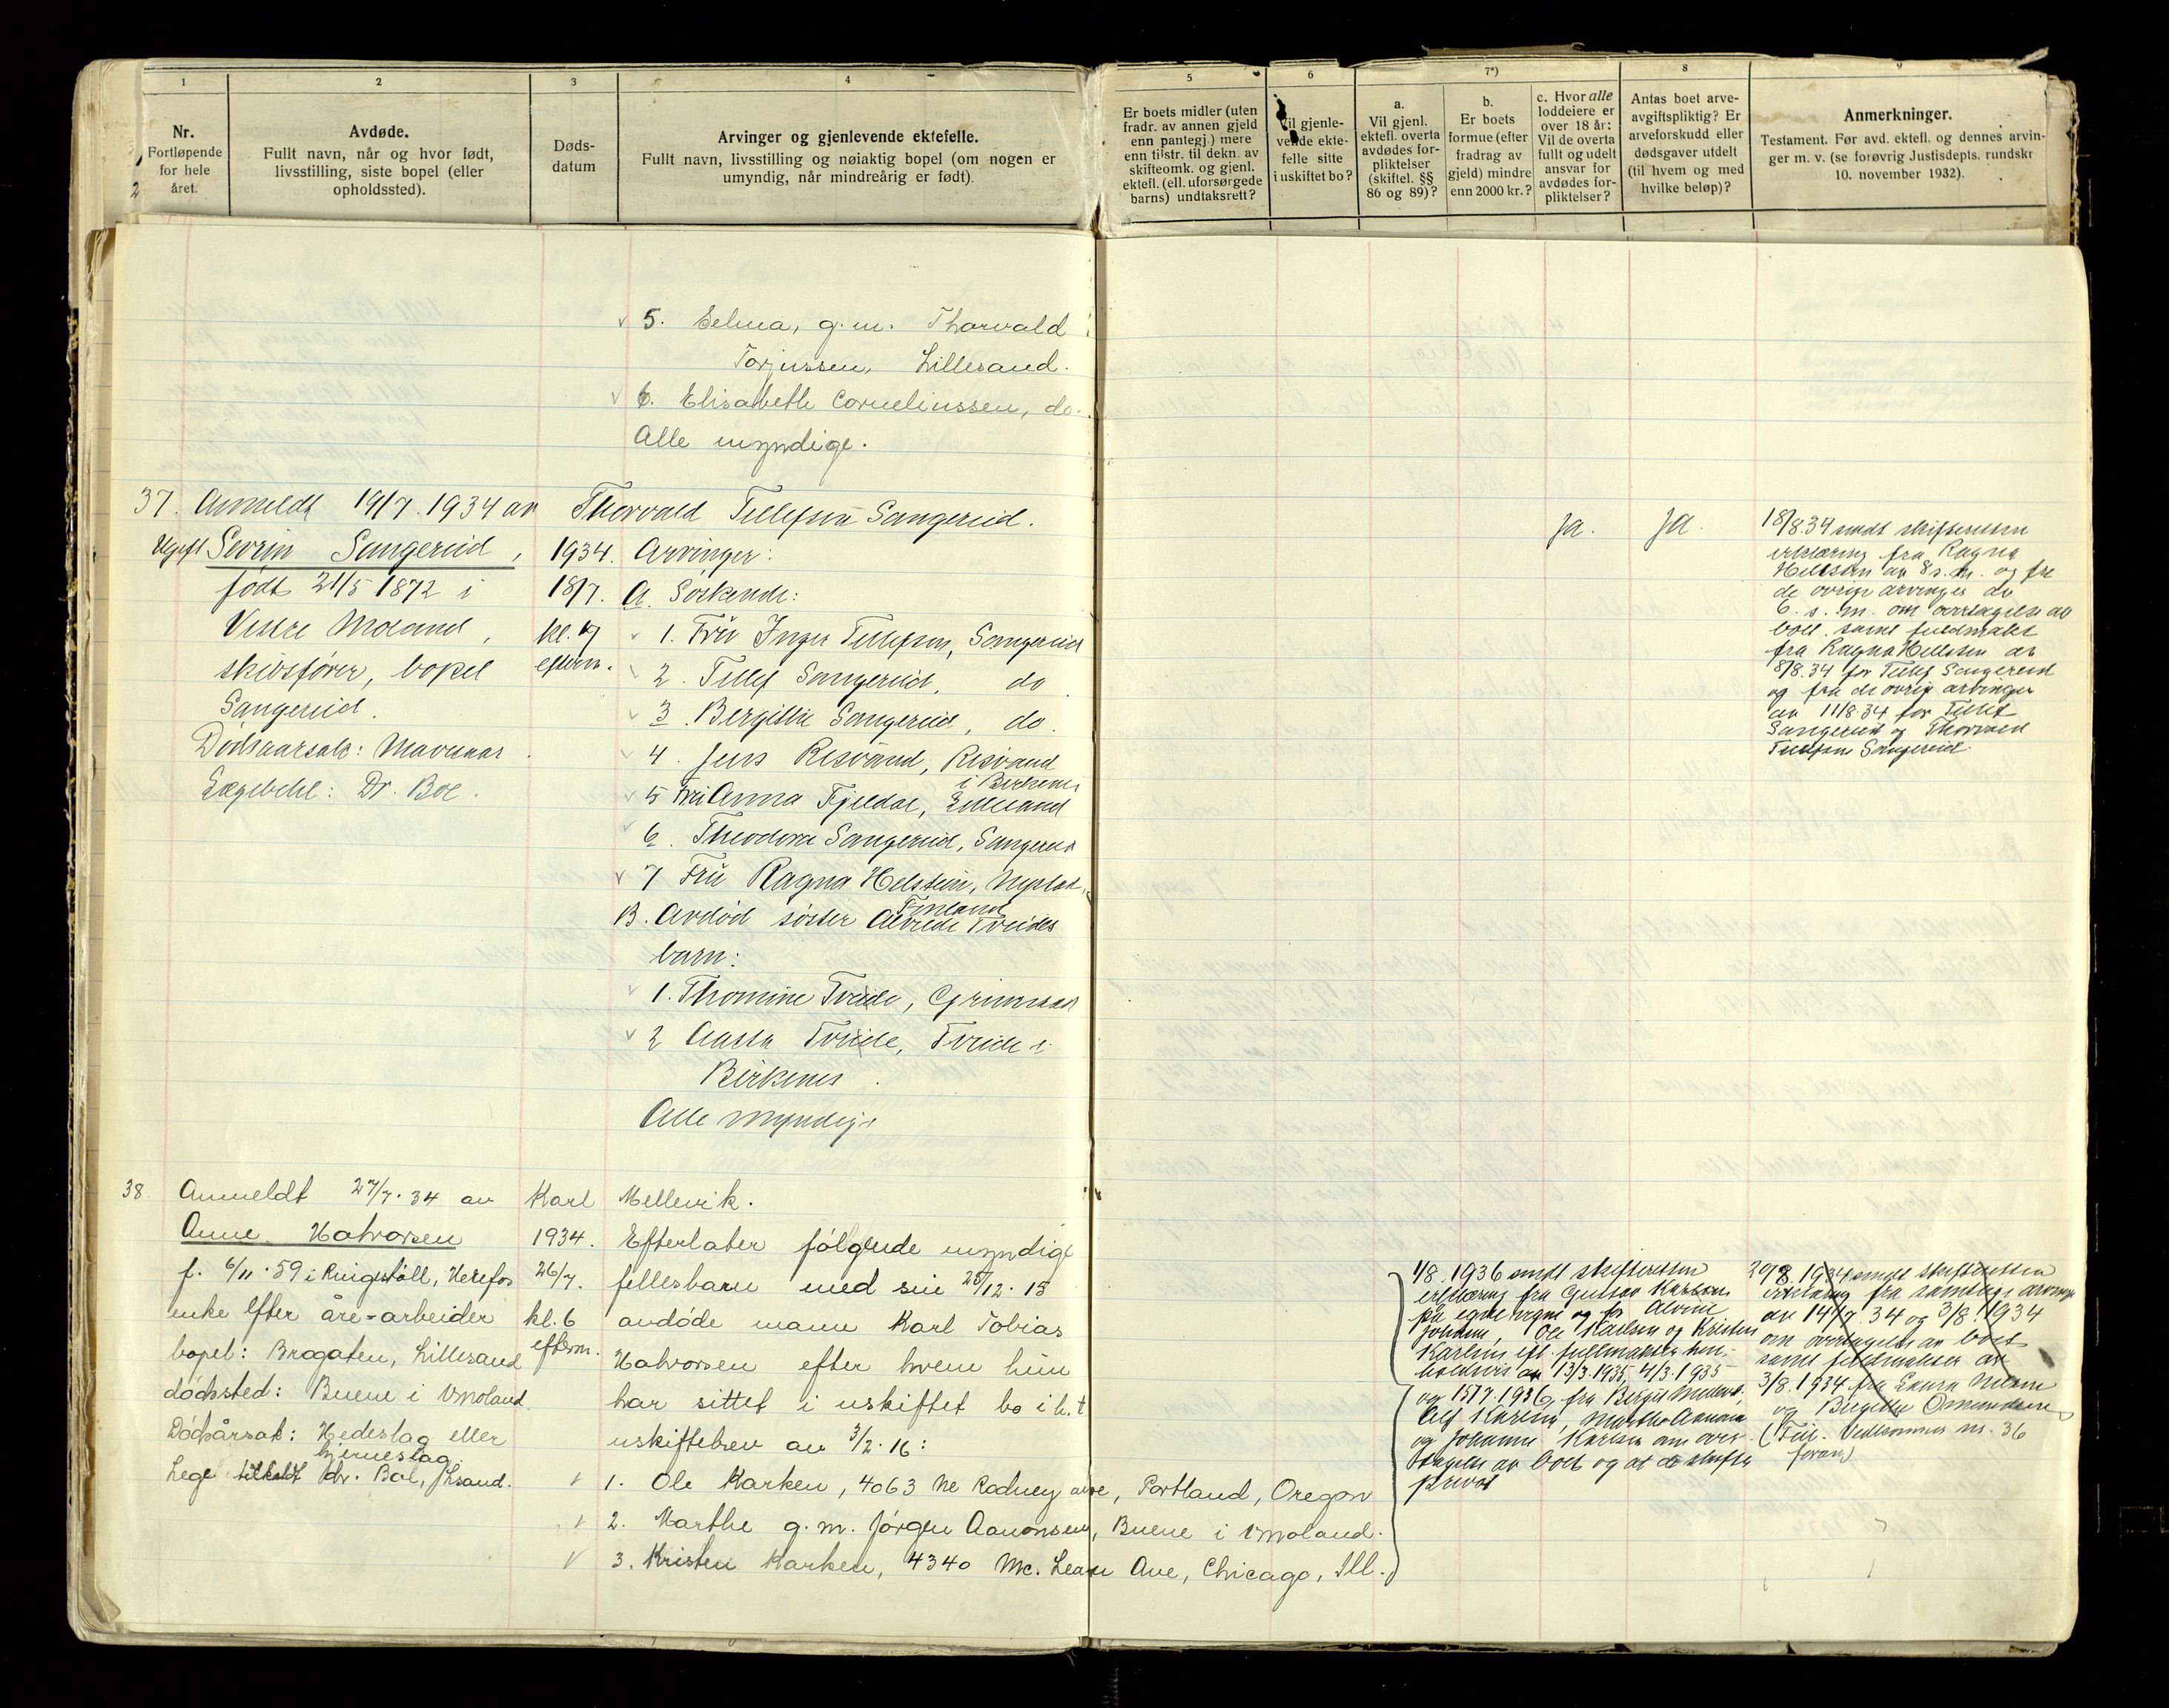 1
Nr.
Fortløpende
for hele
året.
2
Avdøde.
Fullt navn, når og hvor født,
livsstilling, siste bopel (eller
opholdssted).
3
Døds-
datum
4
Arvinger og gjenlevende ektefelle.
Fullt navn, livsstilling og nøiaktig bopel (om nogen er
umyndig, når mindreårig er født).
5
Er boets midler (uten
fradr. av annen gjeld
enn pantegj.) mere
enn tilstr. til dekn. av
skifteomk. og gjenl.
ektefl. (ell. uforsørgede
barns) undtaksrett?
6
Vil gjenle-
vende ekte-
felle sitte
i uskiftet bo?
7*)
a.
Vil gjenl.
ektefl. overta
avdødes for-
pliktelser
(skiftel. §§
86 og 89)?
b.
Er boets
formue (efter
fradrag av
gjeld) mindre
enn 2000 kr.?
c. Hvor alle
loddeiere er
over 18 år:
Vil de overta
fullt og udelt
ansvar for
avdødes for-
pliktelser?
8
Antas boet arve-
avgiftspliktig? Er
arveforskudd eller
dødsgaver utdelt
(til hvem og med
hvilke beløp)?
9
Anmerkninger.
Testament. Før avd. ektefl. og dennes arvin-
ger m. v. (se forøvrig Justisdepts. rundskr
10. november 1932).
5. Selma, g. m. Thorvald
Torjussen, Lillesand.
6. Elisabeth Corneliussen, do.
Alle myndige.
37. Anmeldt 19/7. 1934 av Thorvald Tellefsen Sangereid.
Ugift Sevrin Sangereid,
født 21/5 1872 i
Vestre Moland,
skibsfører, bopel
Sangereid.
Dødsaarsak:
Lægebeh: Dr. Boe.
1934.
18/7.
kl. 7
efterm.
Arvinger:
A. Søskende:
1. Fru Inger Tellefsen, Sangereid
2. Tellef Sangereid, do.
3. Bergitte Sangereid, do.
4. Jens Risvand, Risvand
i Birkenes
5 Fru Anna Fjeldal, Lillesand
6. Theodora Sangereid, Sangereid
7 Fru Ragna Helstein,
Finland
B. Avdød søster Tveides
barn:
1. Thomine Tveide, Grimstad
2 Aasta Tveide, Tveide i
Birkenes.
Alle myndige
Ja.
Ja.
18/8.34 sendt skifteretten
erklæring fra Ragna
Hellstein av 8 s. m. og fra
de øvrige arvinger av
6. s. m. om overtagelse av
boet. samt fuldmakt
fra Ragna Hellstein av
8/8.34 for Tellef Sangereid
og fra de øvrige arvinger
av 11/8.34 for Tellef
Sangereid og Thorvald
Tellefsen Sangereid.
38 Anmeldt 27/7. 34 av Karl Mellevik.
Anne Halvorsen
f. 6/11. 59 i Ringstöll, Herefos
enke efter åre-arbeider
bopel: Brogaten, Lillesand
dödssted: Buene i Vmoland.
Dödsårsak: Hedeslag eller
hjerneslag.
Lege tilkaldt dr. Boe, Lsand.
1934.
26/7.
kl. 6
efterm.
Efterlater fölgende myndige
fellesbarn med sin 25/12. 15
avdöde mann Karl Tobias
Halvorsen efter hvem hun
har sittet i uskiftet bo i h. t
uskiftebrev av 3/2. 16:
1. Ole Karken, 4063 Ne Rodney ave, Portland, Oregon
2. Marthe g. m. Jörgen Aanonsen, Buene i Vmoland.
3. Kristen Karken, 4340 Mc. Lean Ave, Chicago, Ill.
1/8. 1936 sendt skifteretten
erklæring fra Gustav Karlsen
på egne vegne og for Alvine
Johanne, Ole Karlsen og Kristen
Karlsen ifl. fullmakter hen-
holdsvis av 13/3.1935, 4/3.1935
og 15/7.1936, fra Birgit
Alf Karlsen, Marthe Aanonsen
og Johanne Karlsen om over-
tagelse av boet og at de skifter
privat
29/8. 1934 sendt skifteretten
erklæring fra samtlige arvinger
av 14/7 34 og 3/8. 1934
om overtagelse av boet
samt fuldmakter av
3/8. 1934 fra Laura
og Birgitte Omundsen
(Feil. Vedkommer nr. 36
foran)